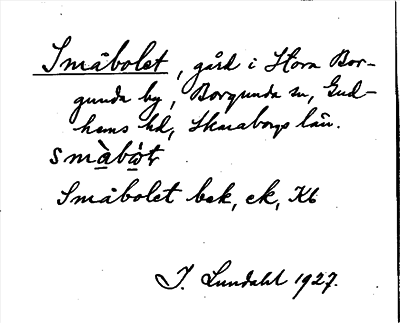 Småbolet, gård i Stora Bor-
gunda by, Borgunda sn, Gud-
hems hd, Skaraborgs län.
Småbolet bek, ek, Kb
I. Lundahl 1927.